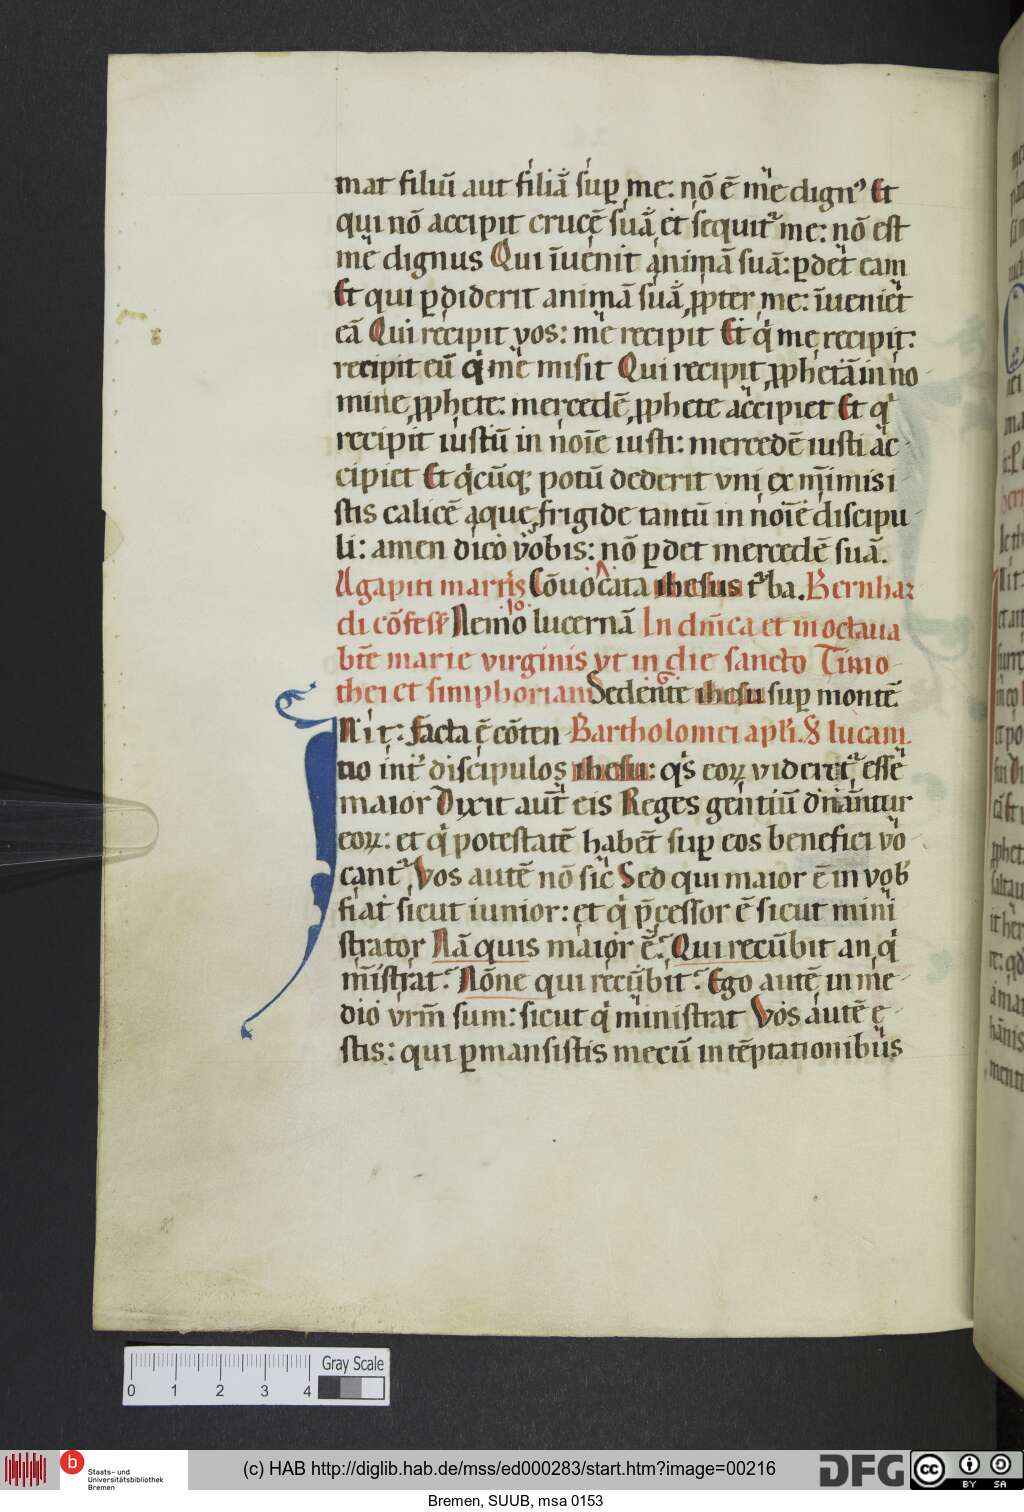 mat filiū aut filiā sup me: nō ē me dignꝰ Et
qui nō accipit crucē suā et sequitᷣ me: nō est
me dignus Qui īuenit animā suā: ꝑdet eam
Et qui ꝑdiderit animā suā ꝓpter me: īueniet
eā Qui recipit vos: me recipit Et qͥ me recipit:
recipit eū qͥ me misit Qui recipit ꝓphetā in no
mine ꝓphete: mercedē ꝓphete accipiet Et qͥ
recipit iustū in noīe iusti: mercedē iusti ac
cipiet Et qͥcūqꝫ potū dederit vni ex mīimis i
stis calicē aque frigide tantū in noīe discipu
li: amen dico vobis: nō ꝑdet mercedē suā.
Agapiti martiris Cōuocata ihesus tᷣba. Bernhar
di cōfess Nemo lucernā In dnīca et in octaua
bte marie virginis vt in die sancto Timo
thei et simphoriani Sedente ihesu sup montē
IN i t: facta ē cōten Bartholomei apli. S lucam
tio intͥ discipulos ihesu: qͥs eoꝝ videretᷣ esse
maior Dixit aut eis Reges gentiū dn̄antur
eoꝝ: et qͥ potestatē habēt sup eos benefici vo
cantᷣ Vos autē nō sic Sed qui maior ē in vob
fiat sicut iunior: et qͥ p̄cessor ē sicut mini
strator Nā quis maior ē Qui recūbit an qͥ
mīstrat Nōne qui recūbit Ego autē in me
dio vrm̄ sum: sicut qͥ ministrat Vos autē e
stis: qui ꝑmansistis mecū in tēptationibus
0 1 2 3 4 Gray Scale
b Staats- und Universitätsbibliothek Bremen
(c) HAB http://diglib.hab.de/mss/ed000283/start.htm?image=00216
DFG
cc BY SA
Bremen, SUUB, msa 0153